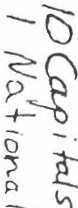 10 Capitals
1 National